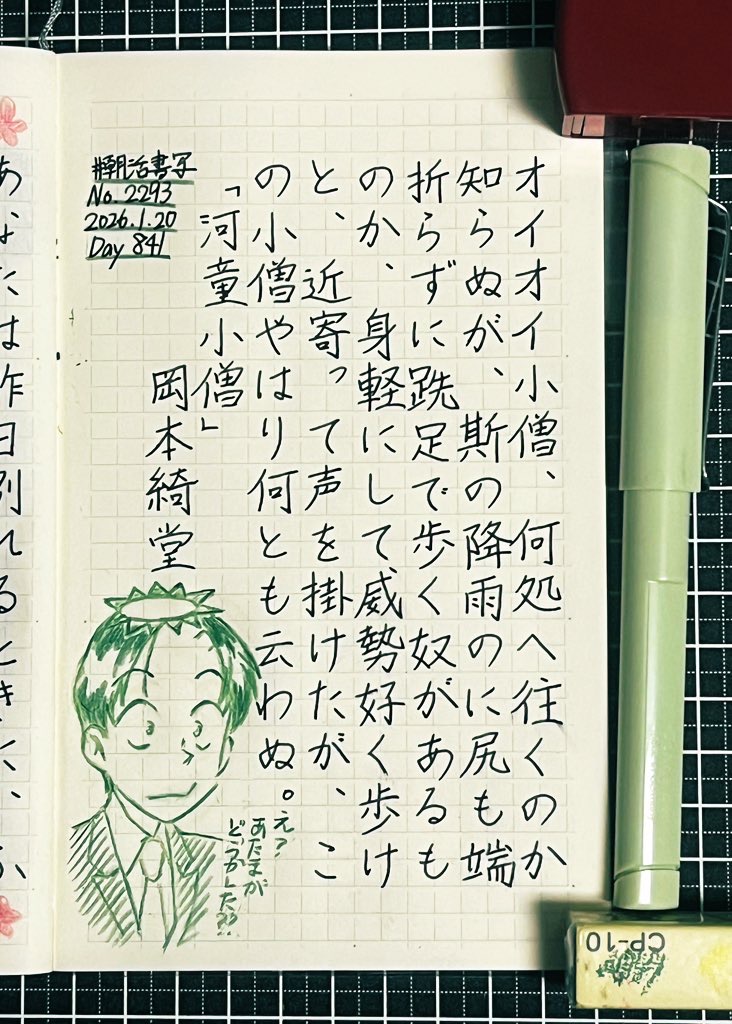 オイオイ小僧、何処へ往くのか
知らぬが、斯の降雨のに尻も端
折らずに跣足で歩く奴があるも
のか、身軽にして威勢好く歩け
と、近寄って声を掛けたが、こ
の小僧やはり何とも云わぬ。
「河童小僧」
岡本綺堂
#朝活書写
No.2293
2026.1.20
Day 841
え？
あたまが
どうかした??
あなたは昨日別れるときに、
CP-10